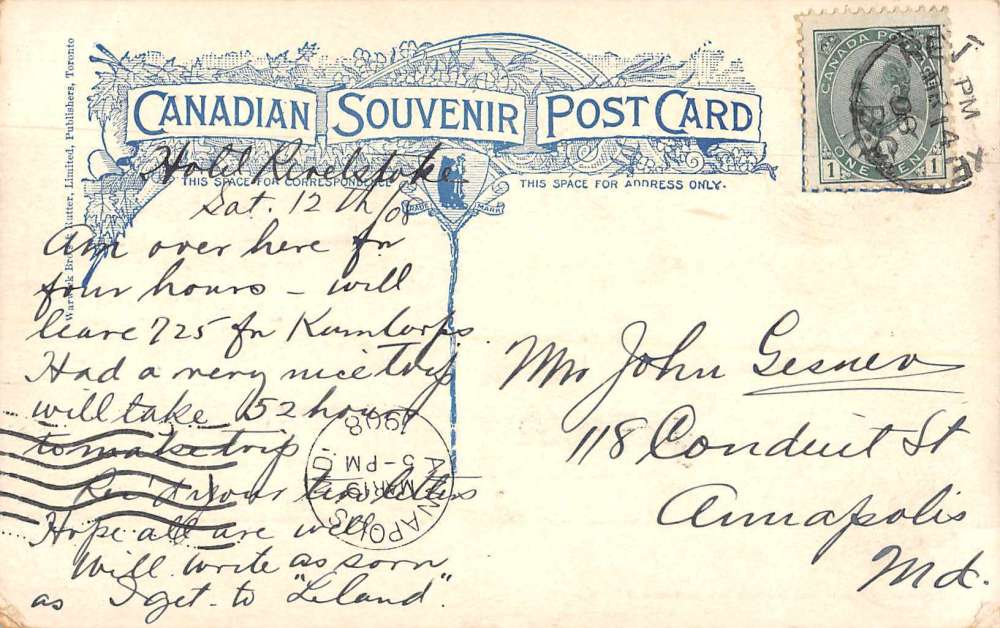 CANADIAN SOUVENIR POST CARD
THIS SPACE FOR CORRESPONDENCE
THIS SPACE FOR ADDRESS ONLY.
TRADE MARK
Warwick Bros & Rutter, Limited, Publishers, Toronto
CANADA POSTAGE
1 ONE CENT 1
PM
14
08
B.C.
Hotel Revelstoke
Sat. 12th/08
Am over here for
four hours – will
leave 725 for Kamloops
Had a very nice trip
will take 52 hours
to make trip
Rec'd your two letters
Hope all are well
Will write as soon
as I get to "Leland".
Mr John Gesner
118 Conduit St
Annapolis
Md.
ANNAPOLIS
MAR 19
5-PM
1908